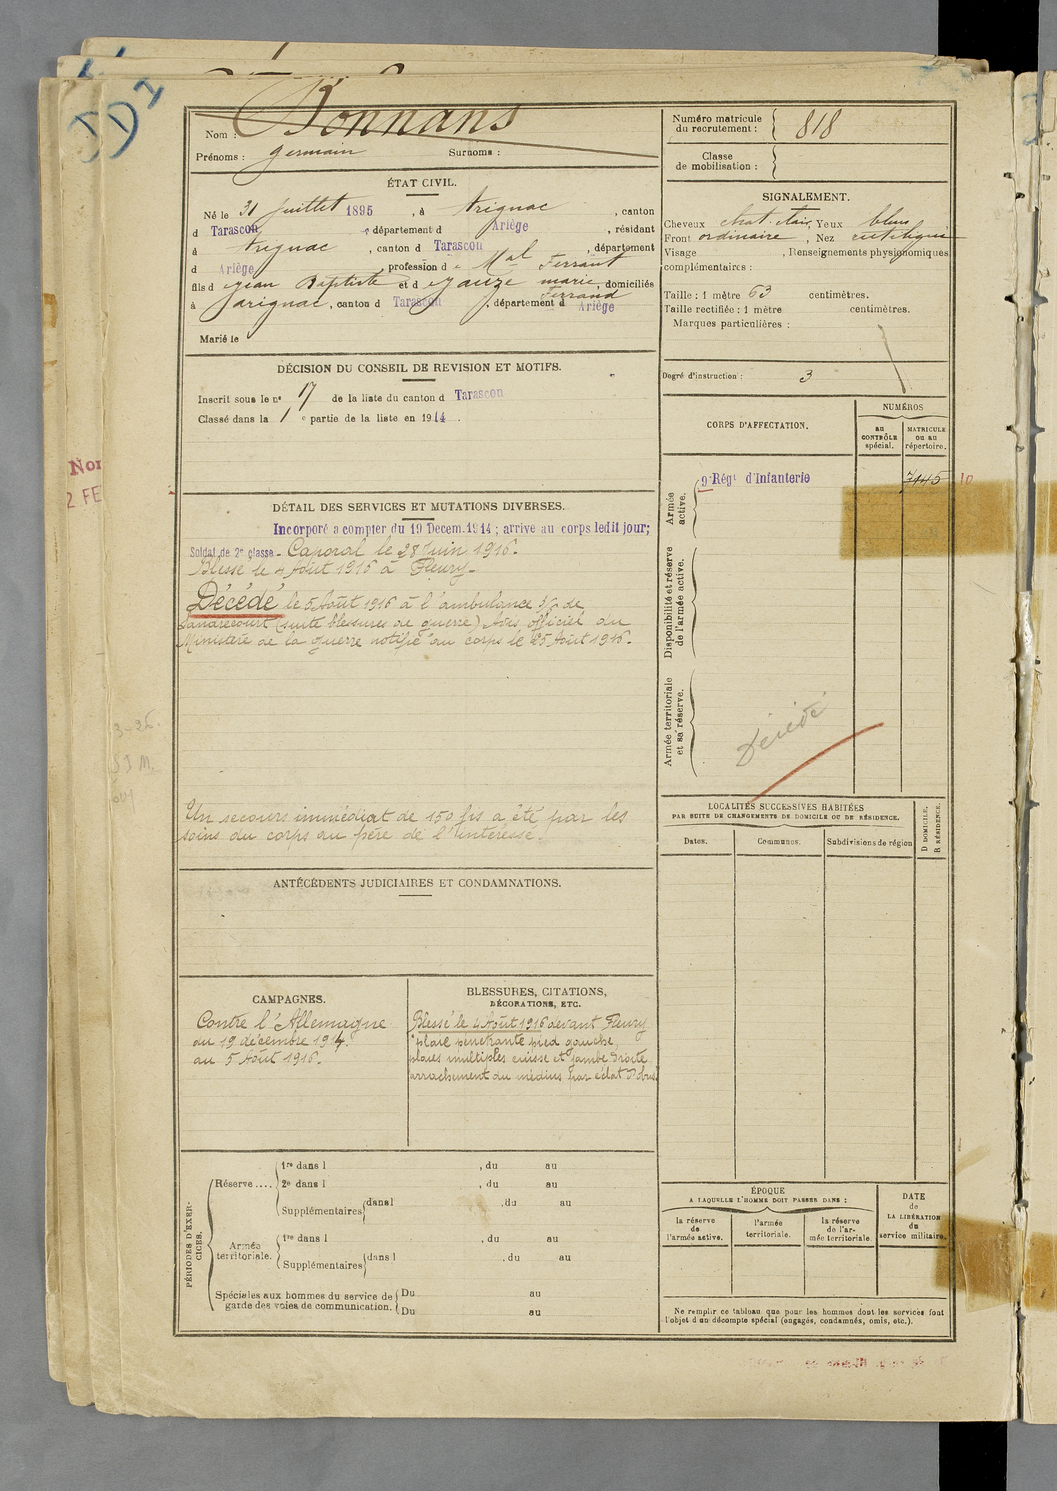 Nom : Bonnans
Prénoms : Germain Surnoms :
ÉTAT CIVIL.
Né le 31 Juillet 1895, à Arignac, canton
d Tarascon, département d Ariège, résidant
à Arignac, canton d Tarascon, département
d Ariège, profession d Mal Ferrant
fils d Jean Baptiste et d Gauze marie, domiciliés
Ferrand
à Arignac, canton d Tarascon, département d Ariège
Marié le
DÉCISION DU CONSEIL DE REVISION ET MOTIFS.
Inscrit sous le no 17 de la liste du canton d Tarascon
Classé dans la 1 e partie de la liste en 1914.
DÉTAIL DES SERVICES ET MUTATIONS DIVERSES.
Incorporé a compter du 19 Decem. 1914 ; arrive au corps ledit jour;
Soldat de 2e classe - Caporal le 28 Juin 1916.
Blessé le 4 Août 1916 à Fleury.
Décédé le 5 Août 1916 à l'ambulance de
Landrecourt (suite blessures de guerre) Avis officiel du
Ministère de la Guerre notifié au corps le 25 Août 1916.
Un secours immédiat de 150 frs a été par les
soins du corps au père de l'intéressé.
ANTÉCÉDENTS JUDICIAIRES ET CONDAMNATIONS.
CAMPAGNES.
Contre l'Allemagne
du 19 décembre 1914.
au 5 Août 1916.
BLESSURES, CITATIONS,
DÉCORATIONS, ETC.
Blessé le 4 Août 1916 devant Fleury
"plaie pénétrante pied gauche,
plaies multiples cuisse et jambe droite
arrachement du médius par éclat d'obus
PÉRIODES D'EXERCICES.
Réserve ....
1re dans l , du au
2e dans l , du au
Supplémentaires dans l , du au
Armée territoriale.
1re dans l , du au
Supplémentaires dans l , du au
Spéciales aux hommes du service de garde des voies de communication.
Du au
Du au
Numéro matricule
du recrutement : 818
Classe
de mobilisation :
SIGNALEMENT.
Cheveux chat. clair, Yeux bleus
Front ordinaire, Nez rectiligne
Visage , Renseignements physionomiques
complémentaires :
Taille : 1 mètre 63 centimètres.
Taille rectifiée : 1 mètre centimètres.
Marques particulières :
Degré d'instruction : 3
CORPS D'AFFECTATION.
NUMÉROS
au CONTRÔLE spécial.
MATRICULE ou au répertoire.
Armée active.
9e Régt d'Infanterie 7145 10
Disponibilité et réserve de l'armée active.
Armée territoriale et sa réserve.
Décédé
LOCALITÉS SUCCESSIVES HABITÉES
PAR SUITE DE CHANGEMENTS DE DOMICILE OU DE RÉSIDENCE.
Dates. Communes. Subdivisions de région
D DOMICILE.
R RÉSIDENCE.
ÉPOQUE
A LAQUELLE L'HOMME DOIT PASSER DANS :
la réserve de l'armée active.
l'armée territoriale.
la réserve de l'armée territoriale.
DATE
de
LA LIBÉRATION
du
service militaire.
Ne remplir ce tableau que pour les hommes dont les services font
l'objet d'un décompte spécial (engagés, condamnés, omis, etc.).